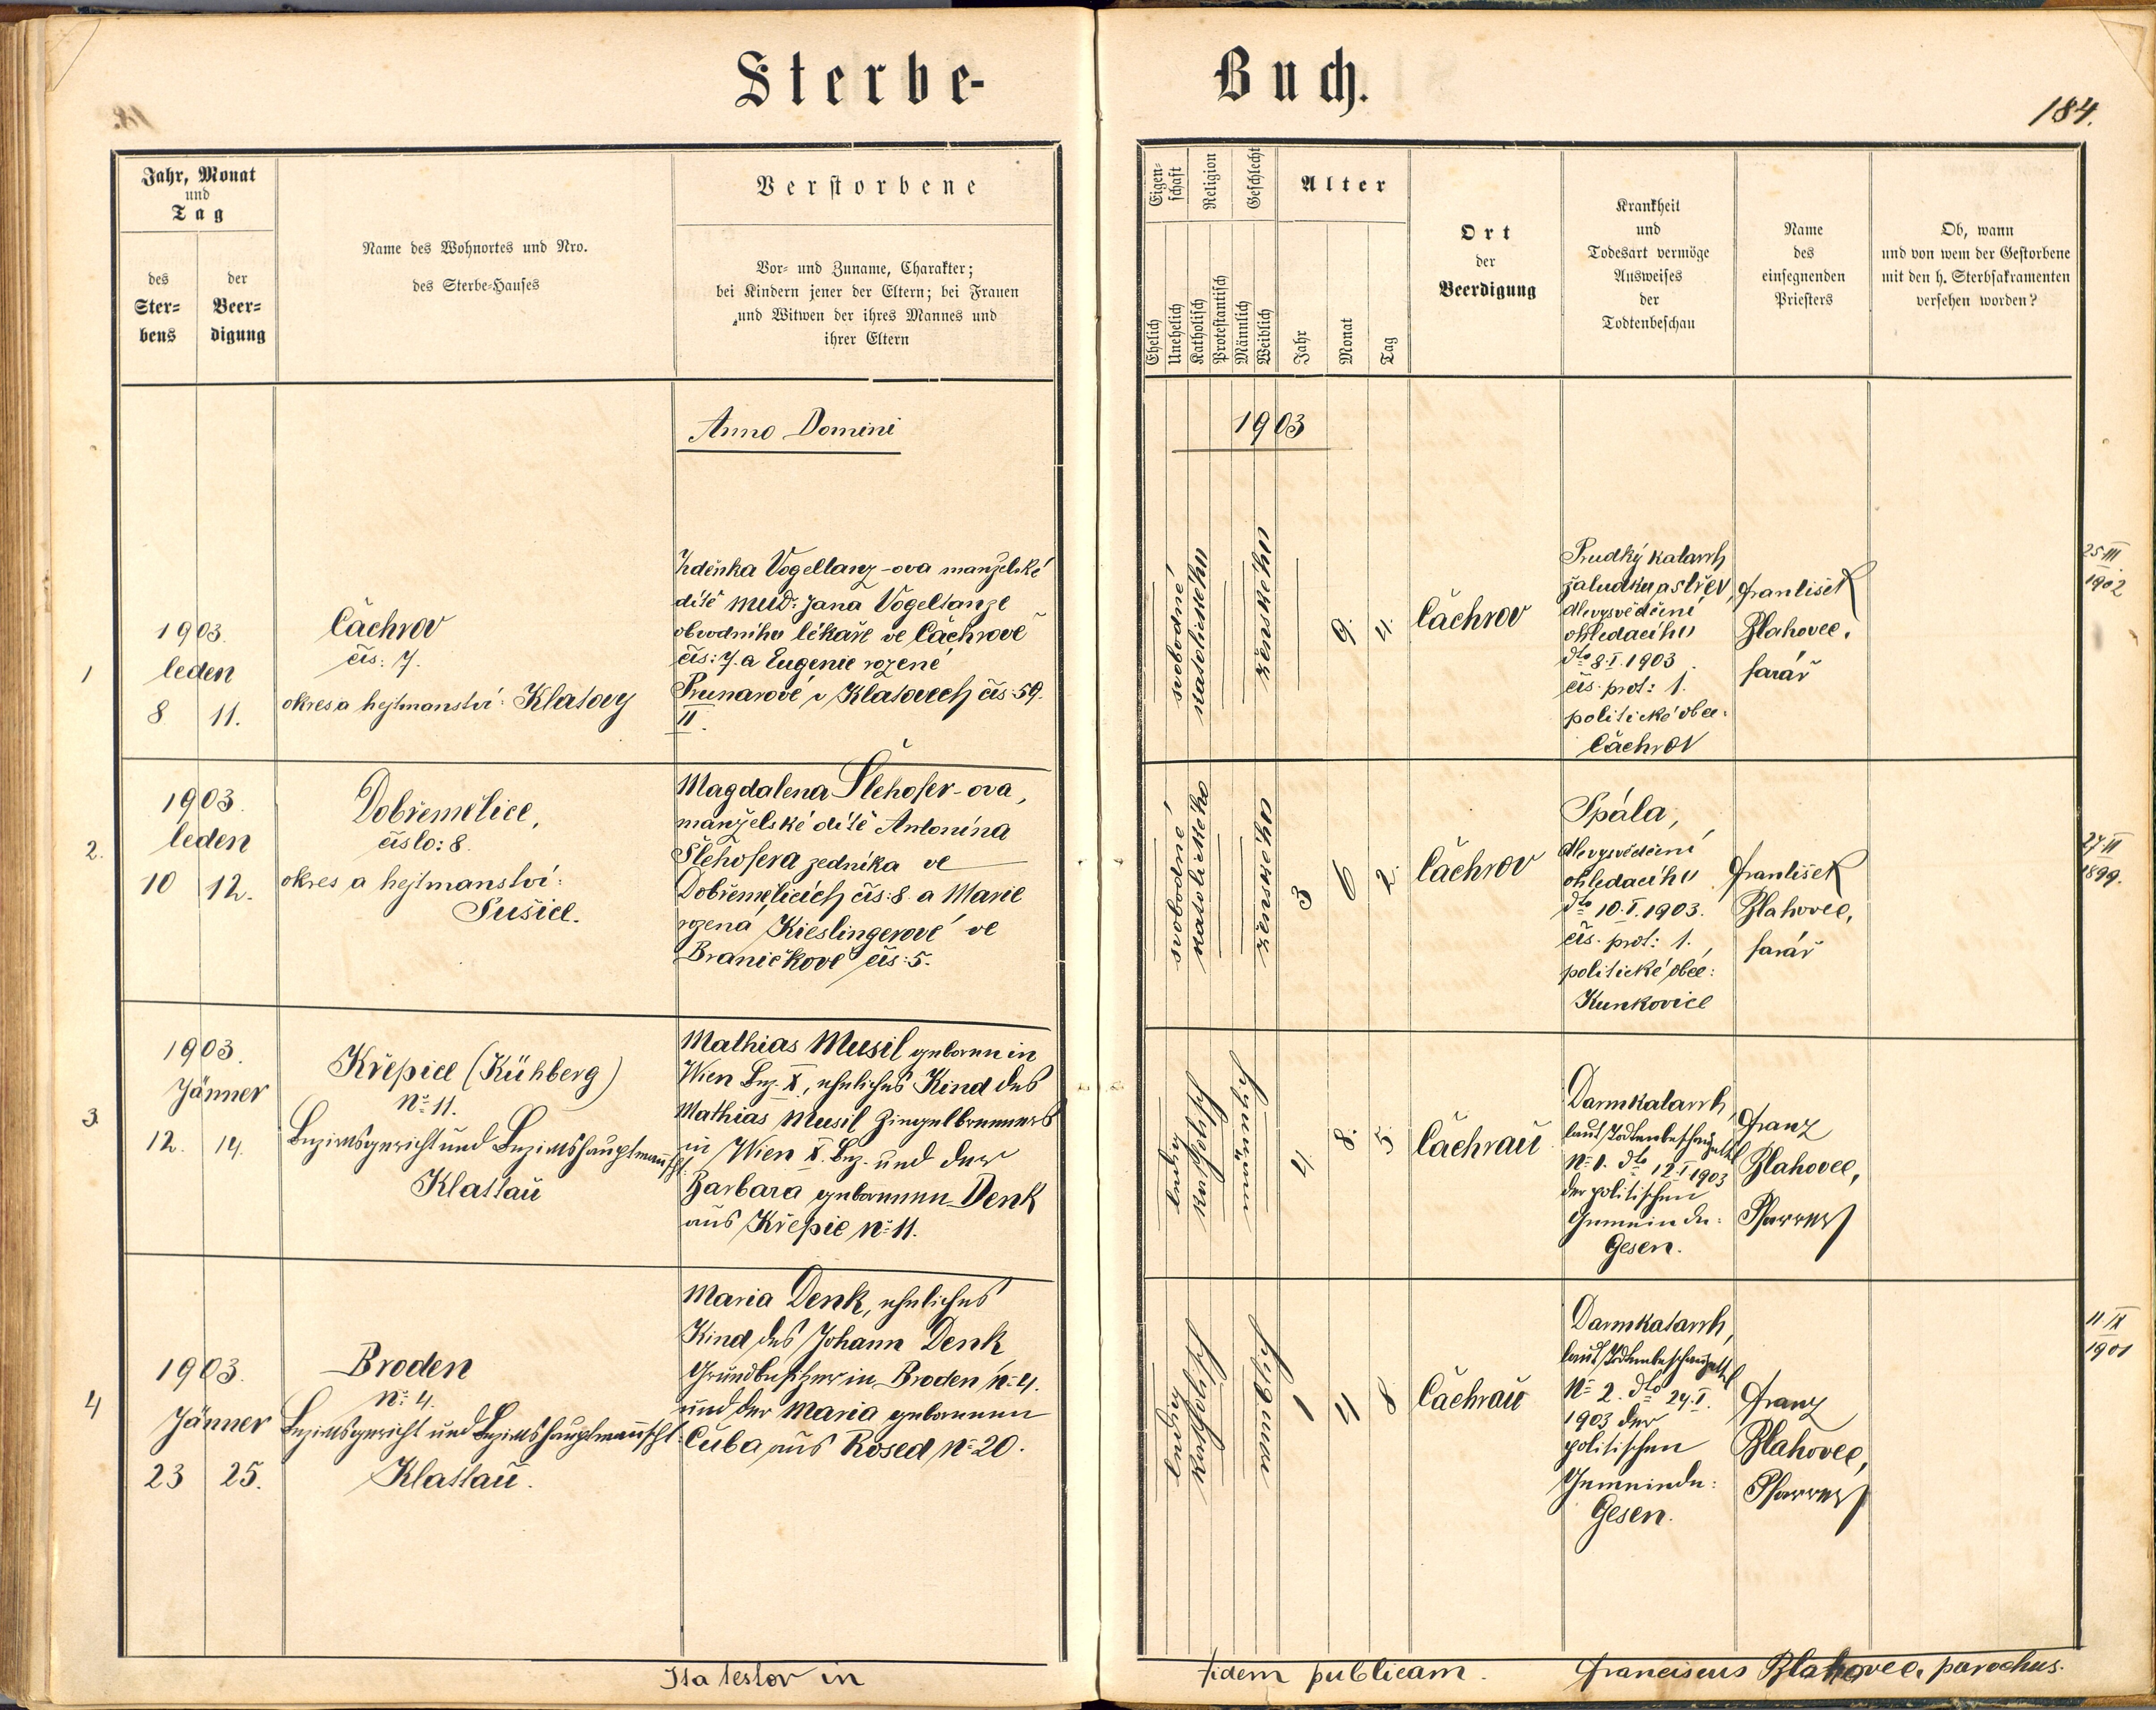 Sterbe-
Buch.
184.
Jahr, Monat
und
Tag
des
Ster-
bens
der
Beer-
digung
Name des Wohnortes und Nro.
des Sterbe-Hauses
Verstorbene
Vor- und Zuname, Charakter;
bei Kindern jener der Eltern; bei Frauen
und Witwen der ihres Mannes und
ihrer Eltern
Eigen-
schaft
Religion
Geschlecht
Alter
Ehelich
Unehelich
Katholisch
Protestantisch
Männlich
Weiblich
Jahr
Monat
Tag
Ort
der
Beerdigung
Krankheit
und
Todesart vermöge
Ausweises
der
Todtenbeschau
Name
des
einsegnenden
Priesters
Ob, wann
und von wem der Gestorbene
mit den h. Sterbsakramenten
versehen worden?
Anno Domini
1903
1
1903.
leden
8 11.
Čachrov
čís: 7.
okres a hejtmanství: Klatovy
Zdeňka Vogeltanz-ova manželské
dítě MUD: Jana Vogeltanze
obvodního lékaře ve Čachrově
čís: 7. a Eugenie rozené
Prunarové v Klatovech čís: 59.
II.
svobodné
katolického
ženského
9. 4.
Čachrov
Prudký katarrh
žaludku a střev,
dle vysvědčení
ohledacího
dto 8.I.1903.
čís. prot: 1.
politické obce:
Čachrov
František
Blahovec,
farář
25 III
1902
2.
1903.
leden
10 12.
Dobřemělice,
číslo: 8.
okres a hejtmanství:
Sušice.
Magdalena Šlehofer-ova,
manželské dítě Antonína
Šlehofera zedníka ve
Dobřemělicích čís: 8. a Marie
rozená Kieslingerové ve
Braničkově čís: 5.
svobodné
katolického
ženského
3 6 2.
Čachrov
Spála,
dle vysvědčení
ohledacího
dto 10.I.1903.
čís. prot: 1.,
politické obce:
Kunkovice
František
Blahovec,
farář
27 VI
1899.
3.
1903.
Jänner
12. 14.
Křepice (Kühberg)
No 11.
Bezirksgericht und Bezirkshauptmannscht:
Klattau
Mathias Musil geboren in
Wien Bez. X, eheliches Kind des
Mathias Musil Ziegelbrenners
in Wien X. Bez. und der
Barbara geborenen Denk
aus Křepic No 11.
ledig
katholisch
männlich
4. 8. 5.
Čachrau
Darmkatarrh,
laut Todtenbeschauzettel
No 1. dto 12.I 1903
der politischen
Gemeinde:
Gesen.
Franz
Blahovec,
Pfarrer
4
1903.
Jänner
23 25.
Broden
No 4.
Bezirksgericht und Bezirkshauptmannscht:
Klattau.
Maria Denk, eheliches
Kind des Johann Denk
Grundbesitzer in Broden No 4.
und der Maria geborenen
Cuba aus Kosed No 20.
ledig
katholisch
weiblich
1 4 8
Čachrau
Darmkatarrh,
laut Todtenbeschauzettel
No 2. dto 24.I.
1903 der
politischen
Gemeinde:
Gesen.
Franz
Blahovec,
Pfarrer
11 IX
1901
Ita testor in
fidem publicam.
Franciscus Blahovec, parochus.